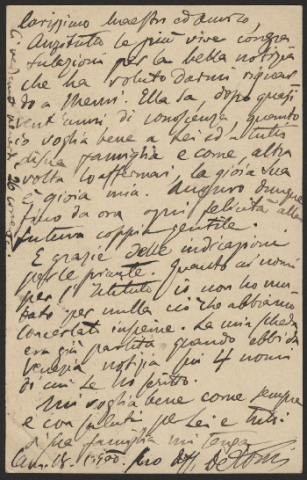 Carissimo Maestro ed amico,
Anzitutto le più vive congra
tulazioni per la bella notizia
che ha voluto darmi riguar
do a Themi. Ella sa, dopo quasi
vent'anni di conoscenza, quanto
io voglia bene a Lei ed a tutta
di Lei famiglia e come altra
volta Lo affermai, la gioia Sua
è gioia mia. Auguro dunque
fino da ora ogni felicità alla
futura coppia gentile.
E grazie delle indicazioni
per le piante. Quanto ai nomi
per l'Istituto io non ho mu
tato per nulla ciò che abbiamo
concertati insieme. La mia scheda
era già partita quando ebbi da
Venezia notizia dei 4 nomi
di cui Le ho scritto.
Mi voglia bene come sempre
e con saluti per Lei e tutti
di Sua famiglia mi tenga
suo aff. De Toni